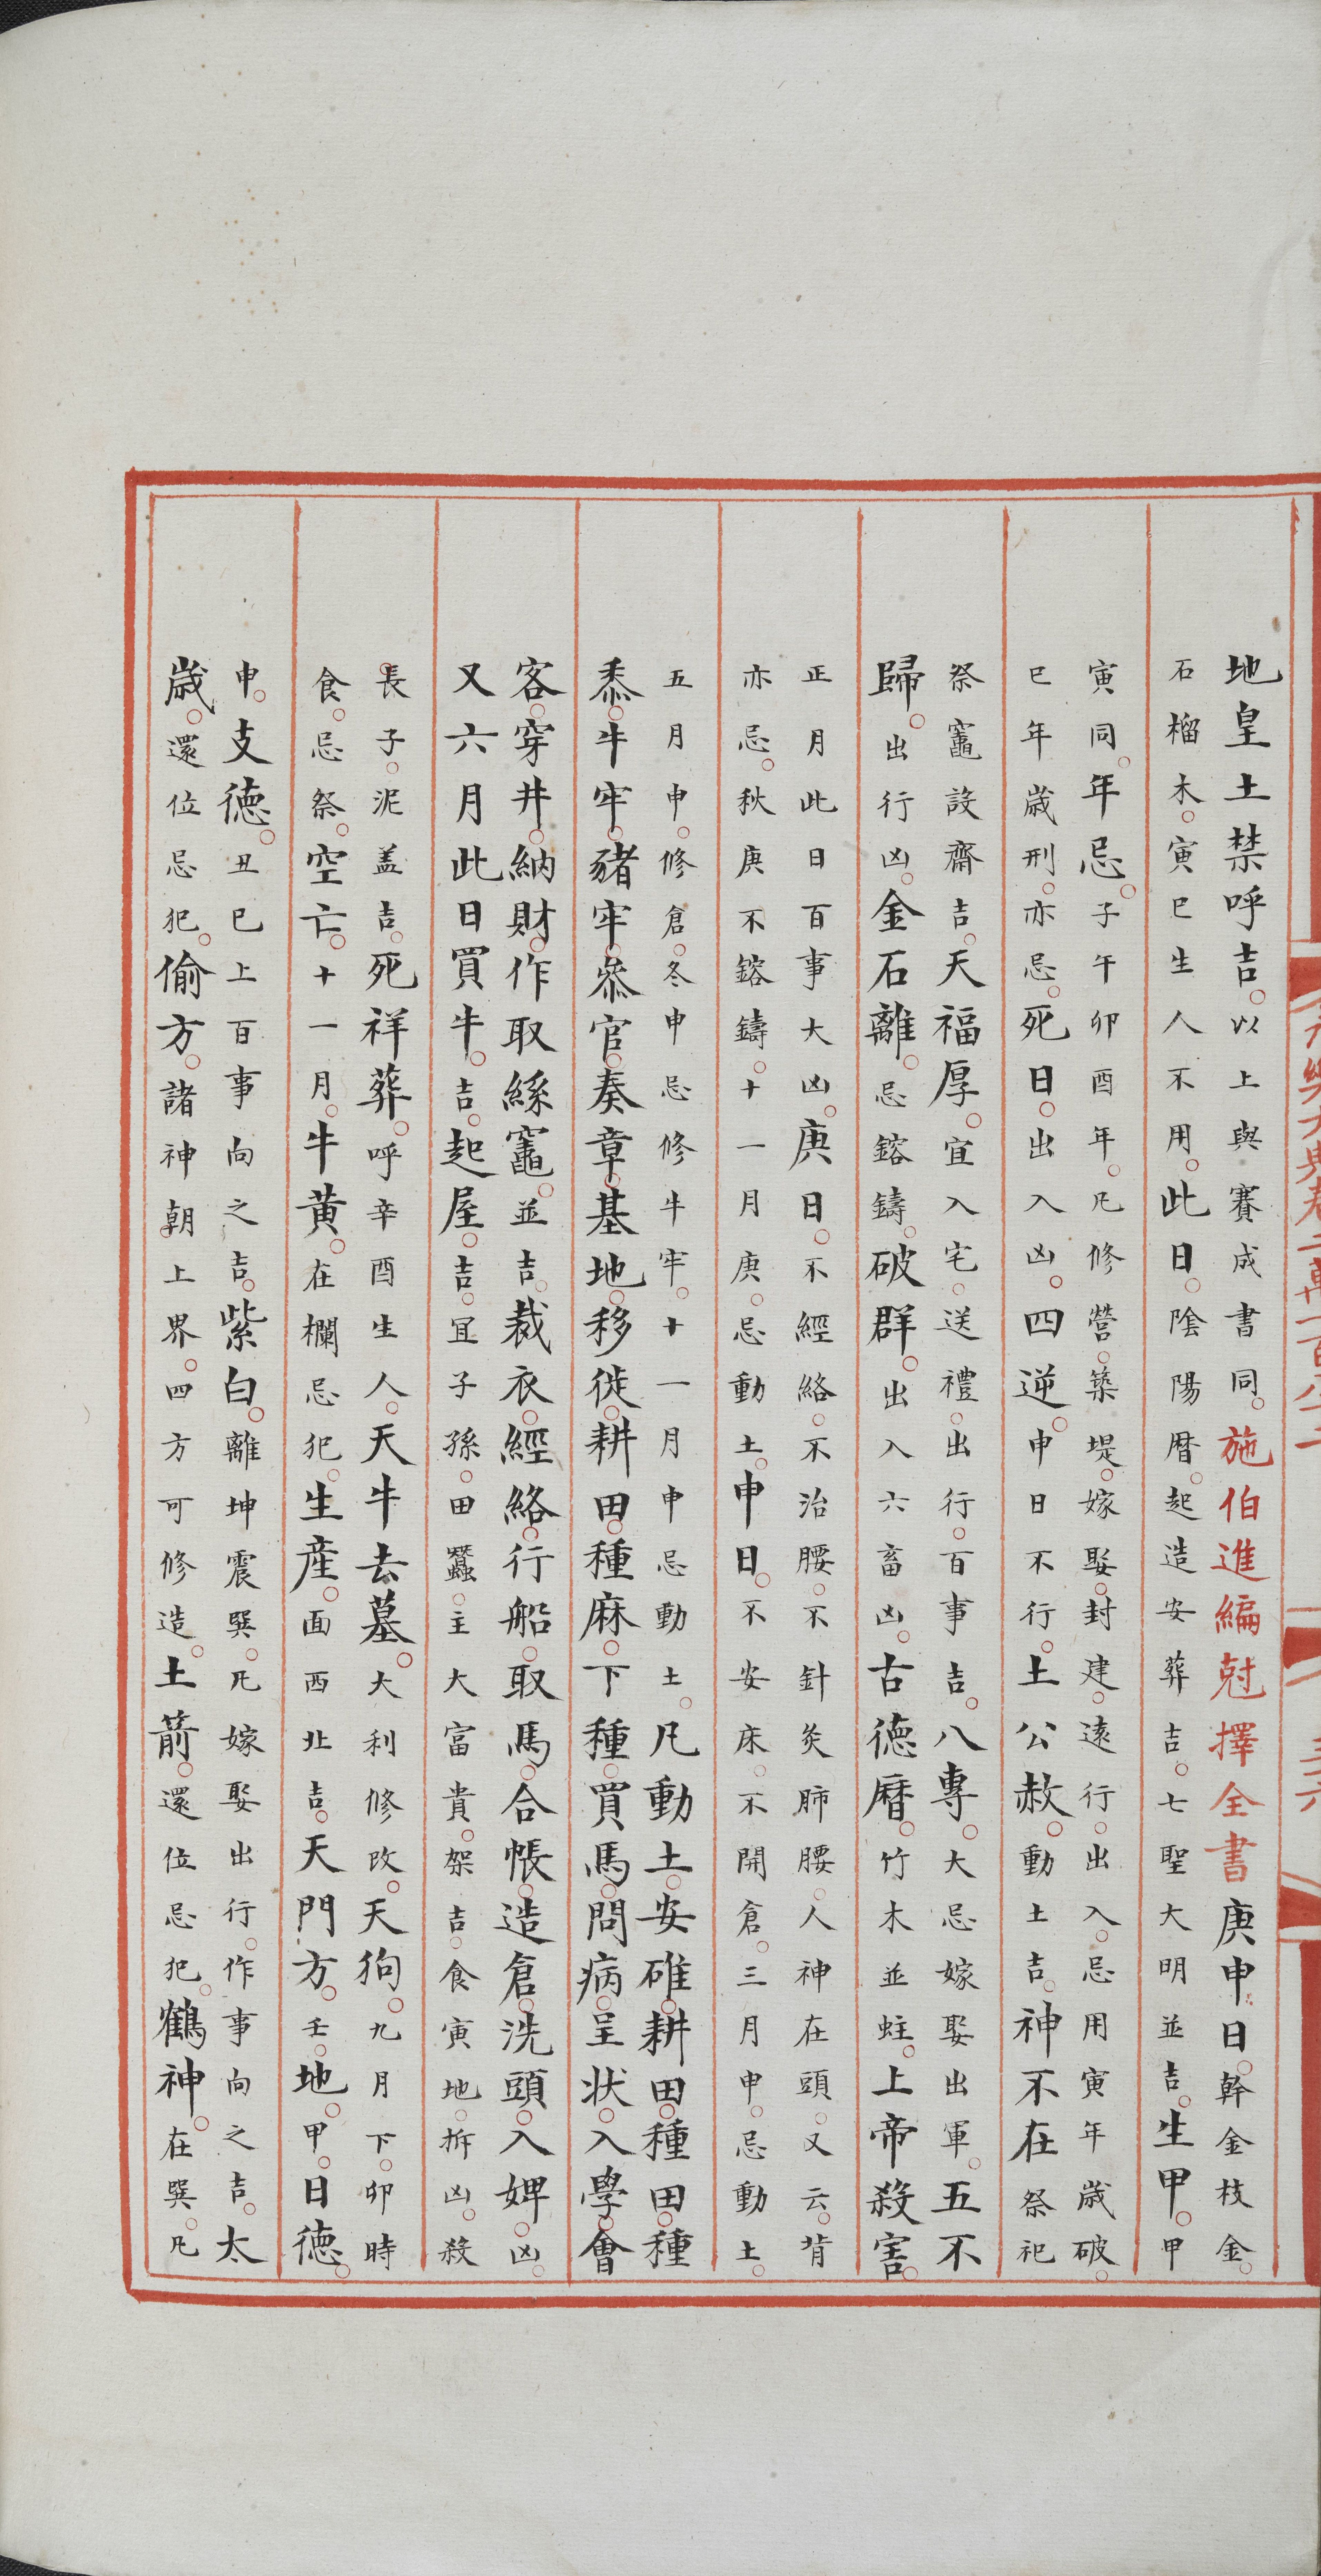 地皇土禁呼吉。以上與賽成書同。施伯進編尅擇全書庚申日。幹金枝金。
石榴木。寅巳生人不用。此日。陰陽曆。起造安葬吉。七聖大明並吉。生甲。甲
寅同。年忌。子午卯酉年。凡修營。築堤。嫁娶。封建。遠行。出入。忌用寅年歲破。
巳年歲刑。亦忌。死日。出入凶。四逆。申日不行。土公赦。動土吉。神不在祭祀
祭竈設齋吉。天福厚。宜入宅。送禮。出行。百事吉。八專。大忌嫁娶出軍。五不
歸。出行凶。金石離。忌鎔鑄。破群。出入六畜凶。古德曆。竹木並蛀。上帝殺害。
正月此日百事大凶。庚日。不經絡。不治腰。不針灸肺腰。人神在頭。又云。背
亦忌。秋庚不鎔鑄。十一月庚。忌動土。申日。不安床。不開倉。三月申。忌動土。
五月申。修倉。冬申忌修牛牢。十一月申忌動土。凡動土。安碓。耕田。種田。種
黍。牛牢。豬牢。叅官。奏章。基地。移徙。耕田。種麻。下種。買馬。問病。呈狀。入學。會
客。穿井。納財。作取絲竈。並吉。裁衣。經絡。行船。取馬。合帳。造倉。洗頭。入婢。凶。
又六月此日買牛。吉。起屋。吉。宜子孫。田蠶。主大富貴。架吉。食寅地。拆凶。殺
長子。泥盖吉。死祥葬。呼辛酉生人。天牛去墓。大利修改。天狗。九月下。卯時
食。忌祭。空亡。十一月。牛黄。在欄忌犯。生産。面西北吉。天門方。壬。地。甲。日德。
申。支德。丑巳上百事向之吉。紫白。離坤震巽。凡嫁娶出行。作事向之吉。太
歲。還位忌犯。偷方。諸神朝上界。四方可修造。土箭。還位忌犯。鶴神。在巽。凡